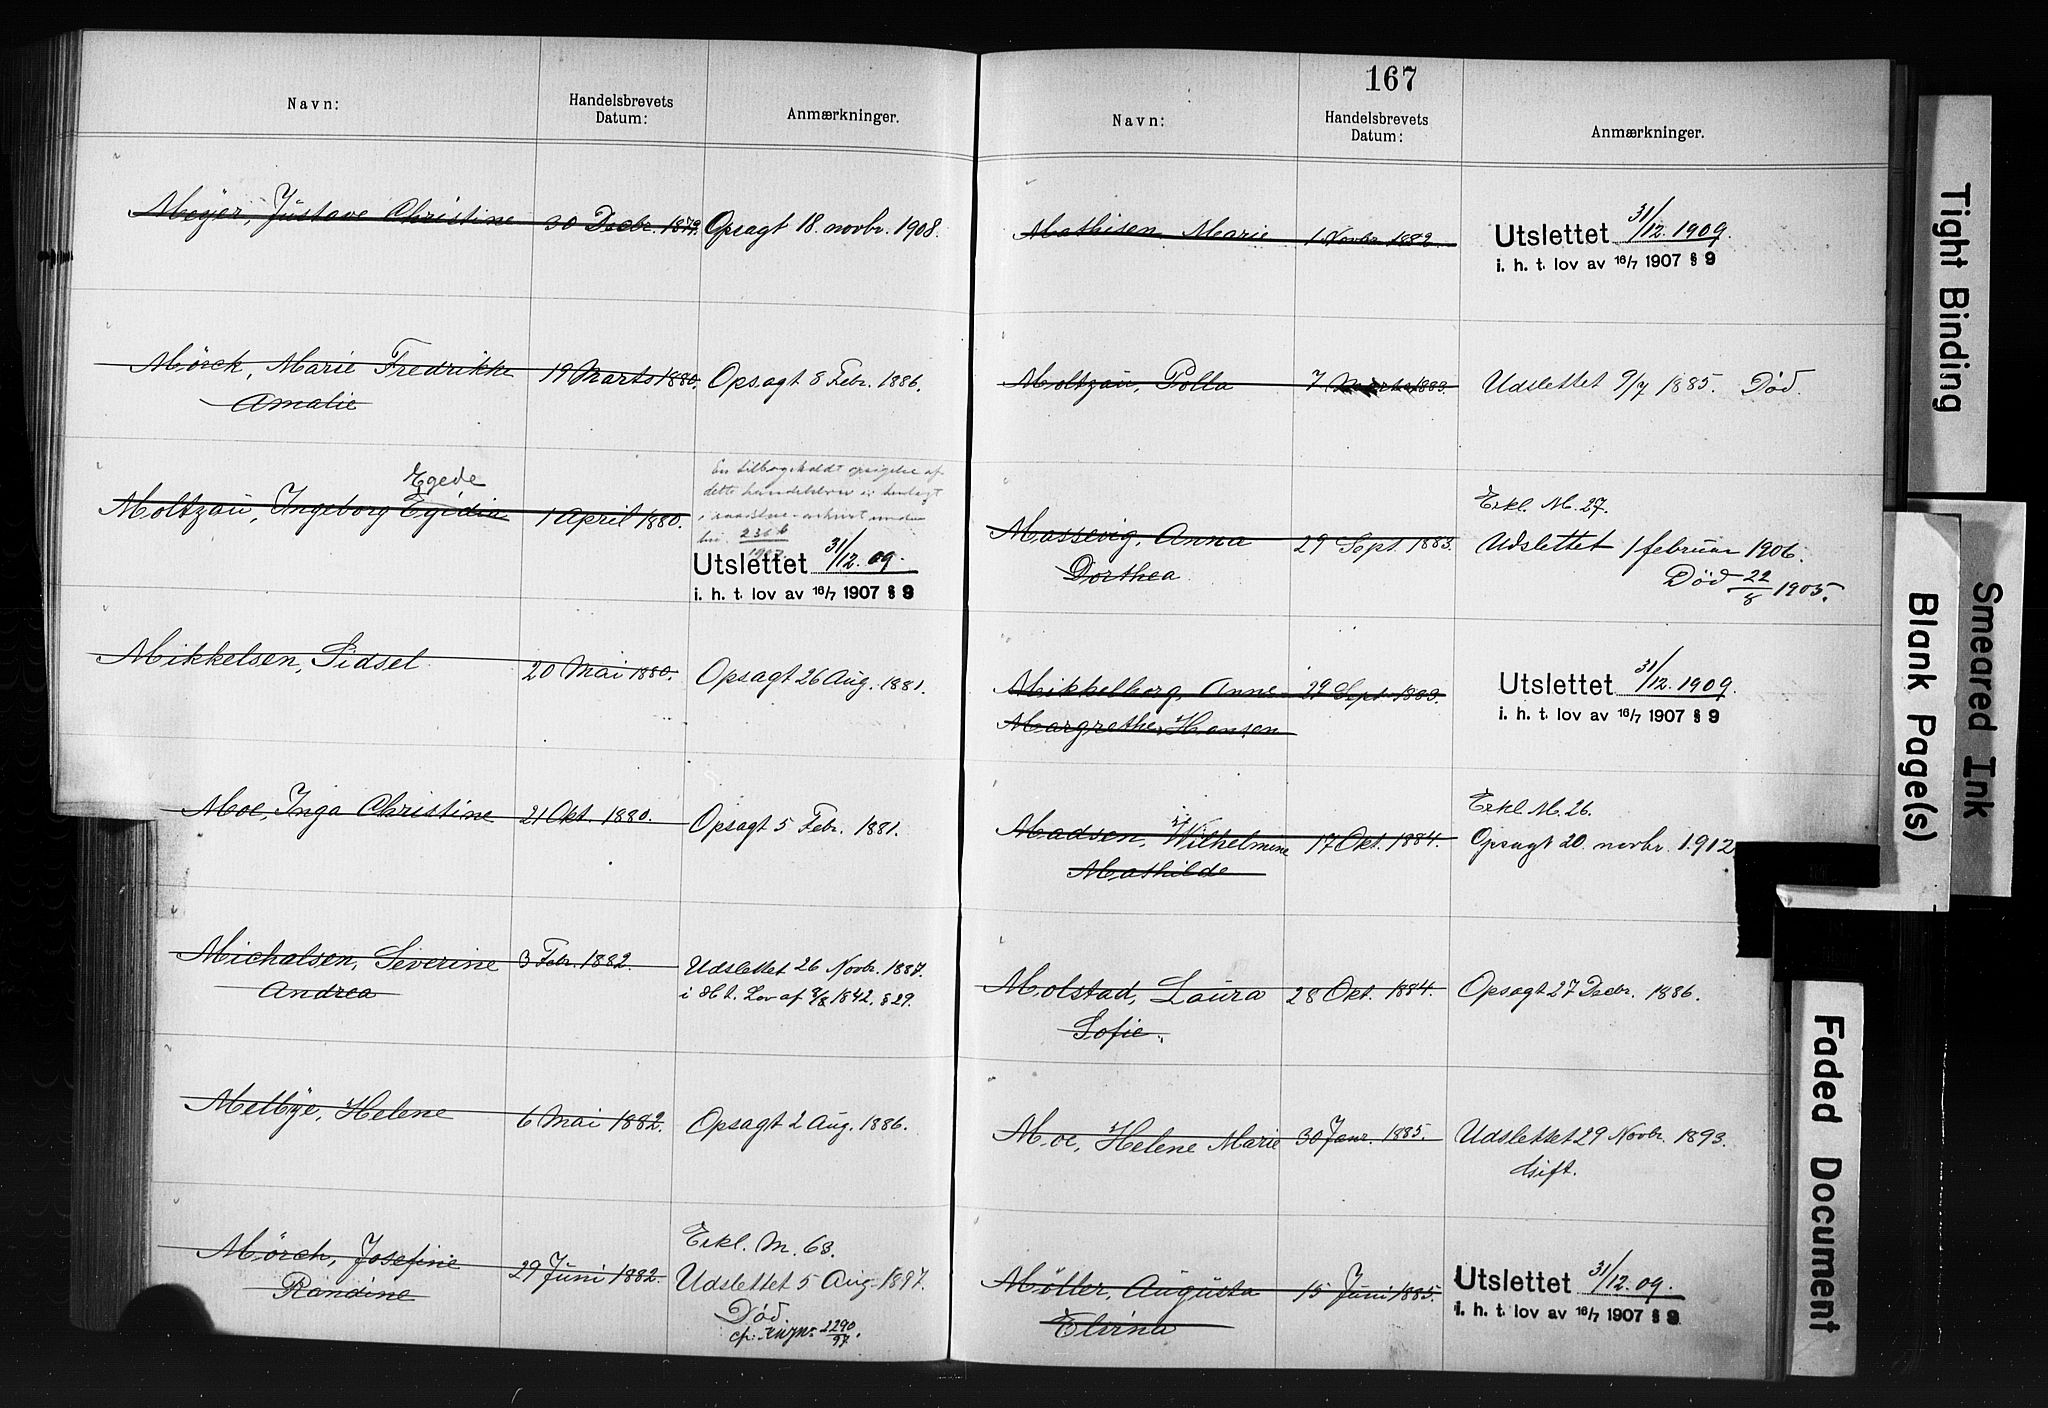 Navn:
Handelsbrevets
Datum:
Anmærkninger.
Meÿer, Jüstave Christine 30 Decbr. 1879. Opsagt 18. novbr. 1908.
Mörck, Marie Fredrikke 19 Marts 1880. Opsagt 8 Febr. 1886.
Amalie
Egede
Moltzaü, Ingeborg Egidia 1 April 1880.
En tilbageholdt opsigelse af
dette handelsbrev er henlagt
under
1907.
Utslettet 31/12. 09.
i. h. t. lov av 16/7 1907 § 9
Mikkelsen, Sidsel 20 Mai 1880. Opsagt 26 Aug. 1881.
Moe, Inga Christine 21 Okt. 1880. Opsagt 5 Febr. 1881.
Michalsen, Severine 3 Febr. 1882. Udslettet 26 Novbr. 1887.
Andrea i H. t. Lov af 8/8 1842. § 29.
Melbÿe, Helene 6 Mai 1882. Opsagt 2 Aug. 1886.
Erkl. M. 63.
Mörch, Josefine 29 Juni 1882. Udslettet 5 Aug. 1897.
Randine
Død
cfr. 2290/97.
167
Navn:
Handelsbrevets
Datum:
Anmærkninger.
Mathisen, Marie 1 Novbr. 1882. Utslettet 31/12. 1909.
i. h. t. lov av 16/7 1907 § 9
Moltzaü, Polla 7 Marts 1883. Udslettet 9/7 1885. Död.
Erkl. M. 27.
Mossevig, Anna 29 Sept. 1883. Udslettet 1 februar 1906.
Dorthea Död 22/8 1905.
Mikkelborg, Anne 29 Sept. 1883. Utslettet 31/12. 1909.
Margrethe, Hansen i. h. t. lov av 16/7 1907 § 9
Erkl. M. 26.
Madsen, Wilhelmine 17 Okt. 1884. Opsagt 20. novbr. 1912.
Mathilde
Molstad, Laüra 28 Okt. 1884. Opsagt 27 Decbr. 1886.
Sofie.
Moe, Helene Marie 30 Janr. 1885. Udslettet 29 Novbr. 1893.
Gift.
Möller, Augüsta 15 Juni 1885. Utslettet 31/12. 09.
Elvina i. h. t. lov av 16/7 1907 § 9
Tight Binding
Smeared Ink
Blank Page(s)
Faded Document